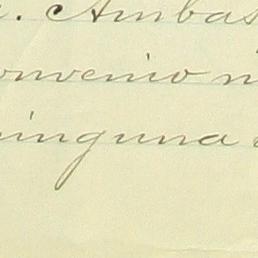 . Ambas
onvenio n
ninguna